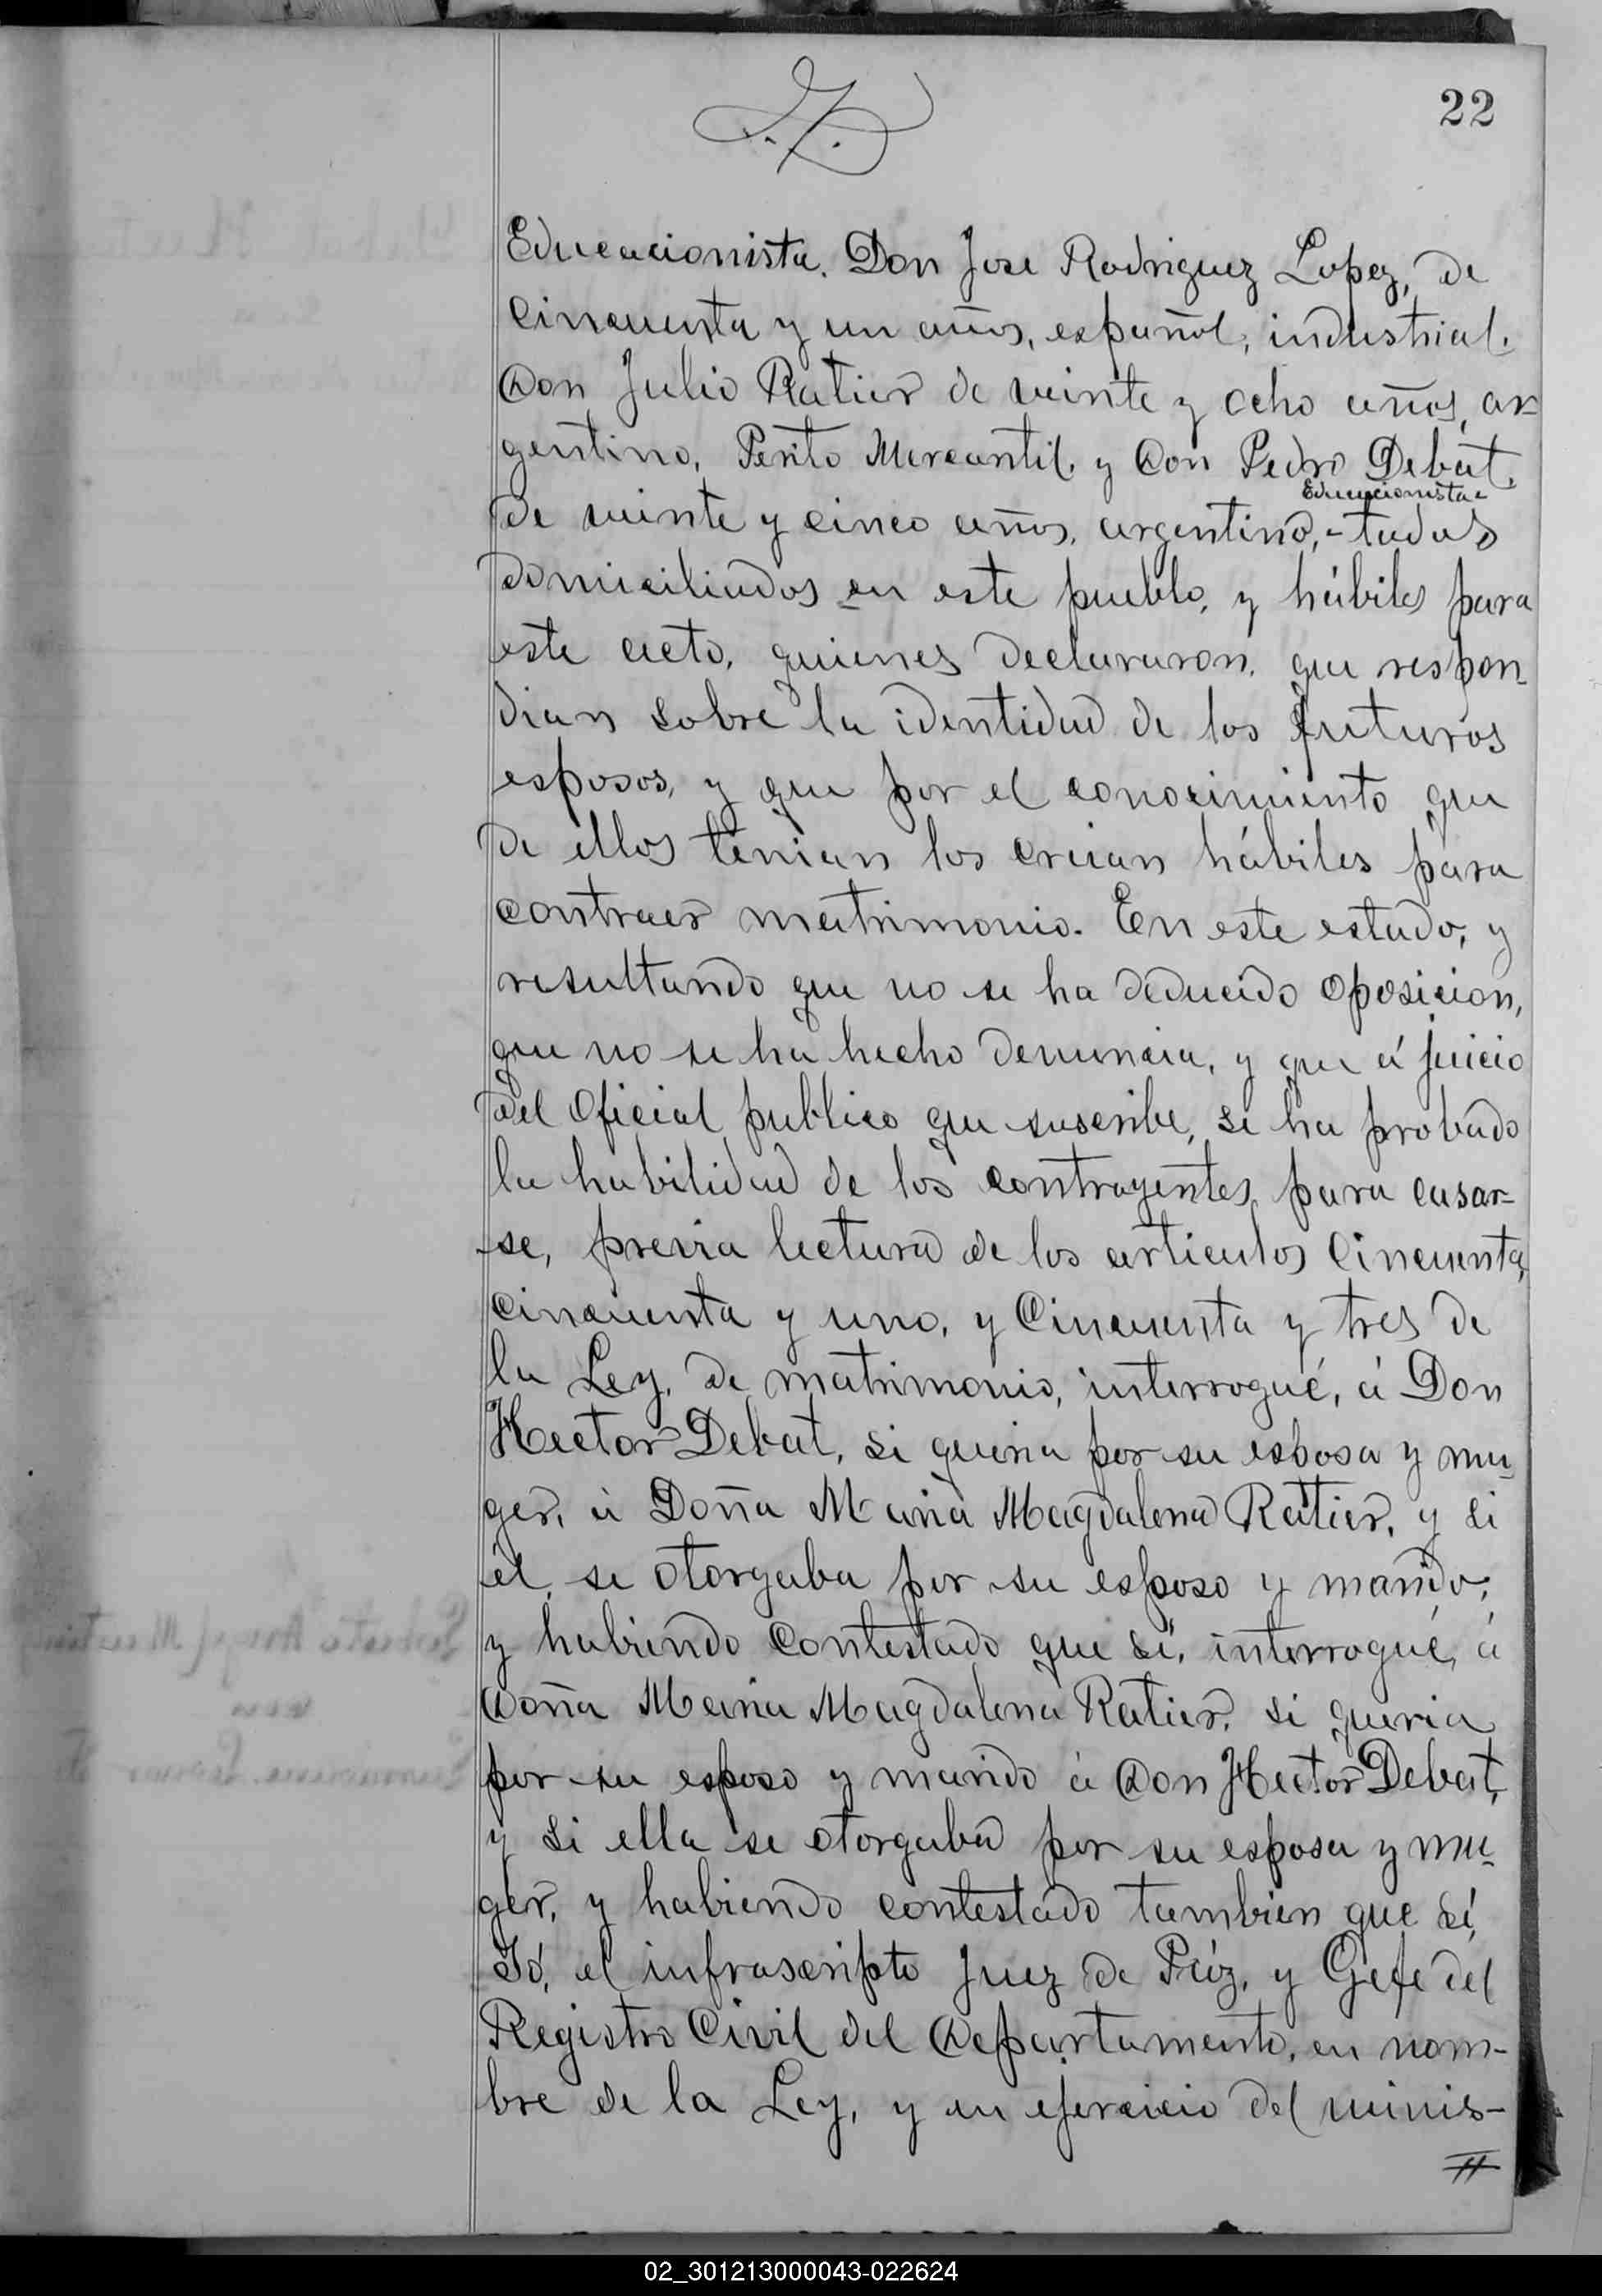 22
Educacionista. Don Jose Rodriguez Lopez, de
cincuenta y un años, español, industrial.
Don Julio Ratier de veinte y ocho años, ar-
gentino, Perito Mercantil, y Don Pedro Debat,
Educacionista
de veinte y cinco años, argentino, - todos
domiciliados en este pueblo, y hábiles para
este acto, quienes declararon, que respon-
dian sobre la identidad de los futuros
esposos, y que por el conocimiento que
de ellos tenian los creian hábiles para
contraer matrimonio. En este estado, y
resultando que no se ha deducido oposicion,
que no se ha hecho denuncia, y que á juicio
del Oficial publico que suscribe, se ha probado
la habilidad de los contrayentes, para casar-
se, previa lectura de los articulos Cincuenta,
cincuenta y uno, y Cincuenta y tres de
la Ley, de matrimonio, interrogué, á Don
Hector Debat, si queria por su esposa y mu-
ger, á Doña Maria Magdalena Ratier, y si
él se otorgaba por su esposo y marido;
y habiendo contestado que sí, interrogué, á
Doña Maria Magdalena Ratier, si queria
por su esposo y marido á Don Hector Debat,
y si ella se otorgaba por su esposa y mu-
ger, y habiendo contestado tambien que sí,
Yó, el infrascripto Juez de Páz, y Gefe del
Registro Civil del Departamento, en nom-
bre de la Ley, y en ejercicio del minis-
02_301213000043-022624